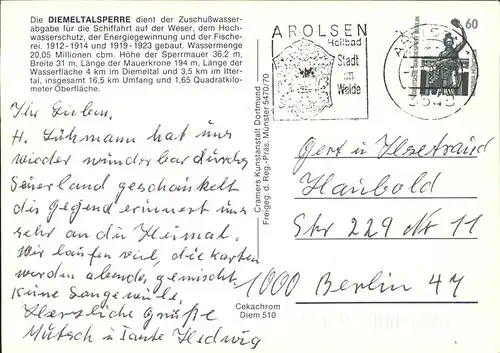 Die DIEMELTALSPERRE dient der Zuschußwasser-
abgabe für die Schiffahrt auf der Weser, dem Hoch-
wasserschutz, der Energiegewinnung und der Fische-
rei. 1912-1914 und 1919-1923 gebaut. Wassermenge
20,05 Millionen cbm. Höhe der Sperrmauer 36,2 m,
Breite 31 m, Länge der Mauerkrone 194 m, Länge der
Wasserfläche 4 km im Diemeltal und 3,5 km im Itter-
tal, insgesamt 16,5 km Umfang und 1,65 Quadratkilo-
meter Oberfläche.
Ihr Lieben.
H. Lühmann hat uns
wieder wunderbar durchs
Sauerland geschaukelt
die Gegend erinnert uns
sehr an die Heimat.
Wir laufen viel, die Karten
werden abends gemischt.
Keine Langeweile.
Herzliche Grüße
Mutsch u Tante Hedwig
Cramers Kunstanstalt Dortmund
Freigeg. d. Reg.-Präs. Münster 5470/70
Cekachrom
Diem 510
AROLSEN
Heilbad
Stadt
im
Walde
60
3548
Gert u Ilsetraud
Haubold
Str 229 Nr 11
1000 Berlin 47